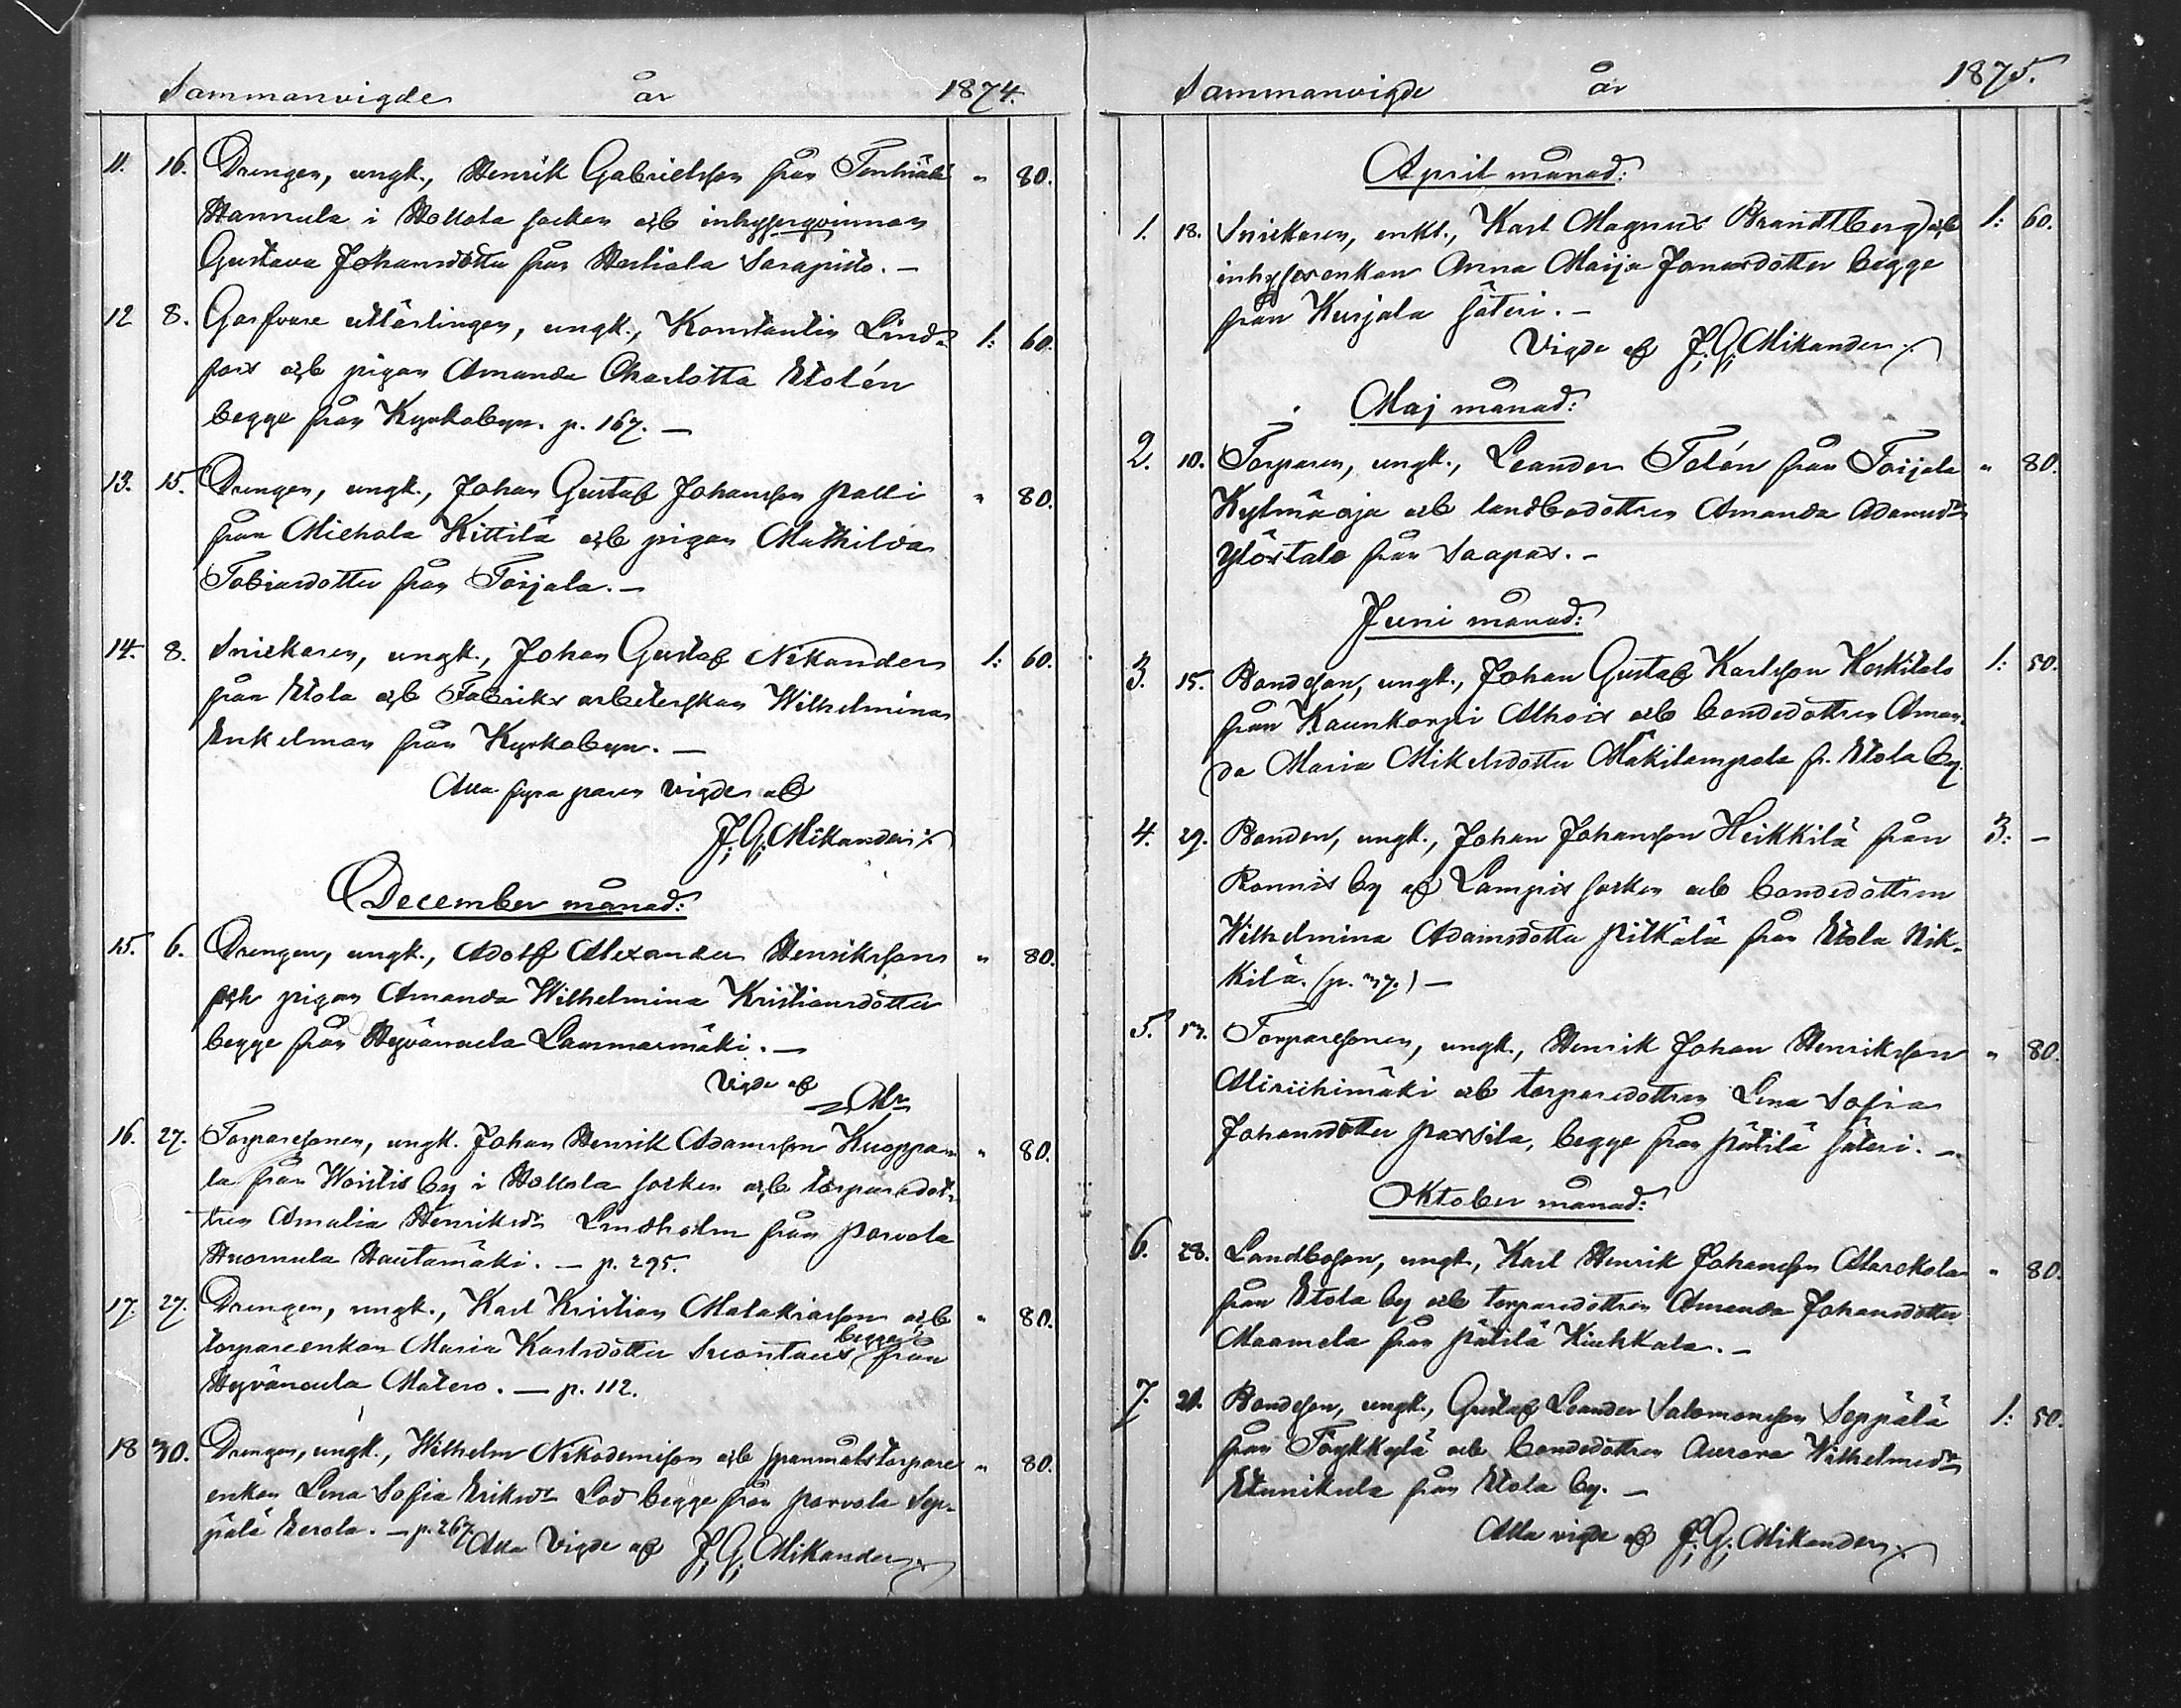 Sammanvigde år 1874.
11. 16. Drengen, ungk., Henrik Gabrielsson från Tenhiälä " 80.
Hannula i Hollola socken och inhysesqvinnan
Gustava Johansdotter från Hertiala Sarapisto. —
12 8. Garfvare utlärlingen, ungk., Konstantin Lind= 1: 60.
fors och pigan Amanda Charlotta Etolén
begge från Kyrkobyn. p. 167. —
13. 15. Drengen, ungk., Johan Gustaf Johansson Palli " 80.
från Michola Kittilä och pigan Mathilda
Tobiasdotter från Toijala. —
14. 8. Snickaren, ungk., Johan Gustaf Nikander 1: 60.
från Etola och Fabriks arbeterskan Wilhelmina
Enkelman från Kyrkobyn. —
Alla fyra paren vigde af
J. G. Mikander
December månad:
15. 6. Drengen, ungk., Adolf Alexander Henriksson " 80.
och pigan Amanda Wilhelmina Kristiansdotter
begge från Hyväneula Lammasmäki. —
Vigde af
Mr
16. 27. Torparesonen, ungk. Johan Henrik Adamsson Kuoppa= " 80.
la från Woistis by i Hollola socken och torparedot=
tren Amalia Henriksdr Lindholm från Porvola
Huomula Hautamäki. — p. 295.
17. 27. Drengen, ungk., Karl Kristian Malakiasson och " 80.
torpareenkan Maria Karlsdotter Suontaus begge från
Hyväneula Matero. — p. 112.
18 30. Drengen, ungk., Wilhelm Nikodemisson och spanmålstorpare " 80.
enkan Lena Sofia Eriksdr Lod begge från Porvola Sep=
pälä Eerola. — p. 267. Alla Vigde af J. G. Mikander
Sammanvigde år 1875.
April månad:
1. 18. Snickaren, enkl., Karl Magnus Brandtberg och 1: 60.
inhysesenkan Anna Maija Jonasdotter begge
från Kurjala säteri. —
Vigde af J. G. Mikander
Maj månad:
2. 10. Torparen, ungk., Leander Tolén från Toijala " 80.
Kylmäoja och landbodottren Amanda Adamsdr
Ylöstalo från Saapas. —
Juni månad:
3. 15. Bondeson, ungk., Johan Gustaf Karlsson Koskitalo 1: 50.
från Kaunkorpi Alhois och bondedottren Aman=
da Maria Mikelsdotter Mäkilampola fr. Etola by.
4. 29. Bonden, ungk., Johan Johansson Heikkilä från 3: —
Ronnis by af Lampis socken och bondedottren
Wilhelmina Adamsdotter Pitkälä från Etola Nik=
kilä. (p. 37.) —
5. 13. Torparesonen, ungk., Henrik Johan Henriksson " 80.
Miriihimäki och torparedottren Lena Sofia
Johansdotter Passila, begge från Pätilä säteri. —
Oktober månad:
6. 28. Landboson, ungk., Karl Henrik Johansson Marckola " 80.
från Etola by och torparedottren Amanda Johansdotter
Maamela från Pätilä Kiukkala. —
7. 20. Bondeson, ungk., Gustaf Leander Salomonsson Seppälä 1: 50.
från Töykkylä och bondedottren Aurora Wilhelmsdr
Eunikula från Etola by. —
Alla vigde af J. G. Mikander